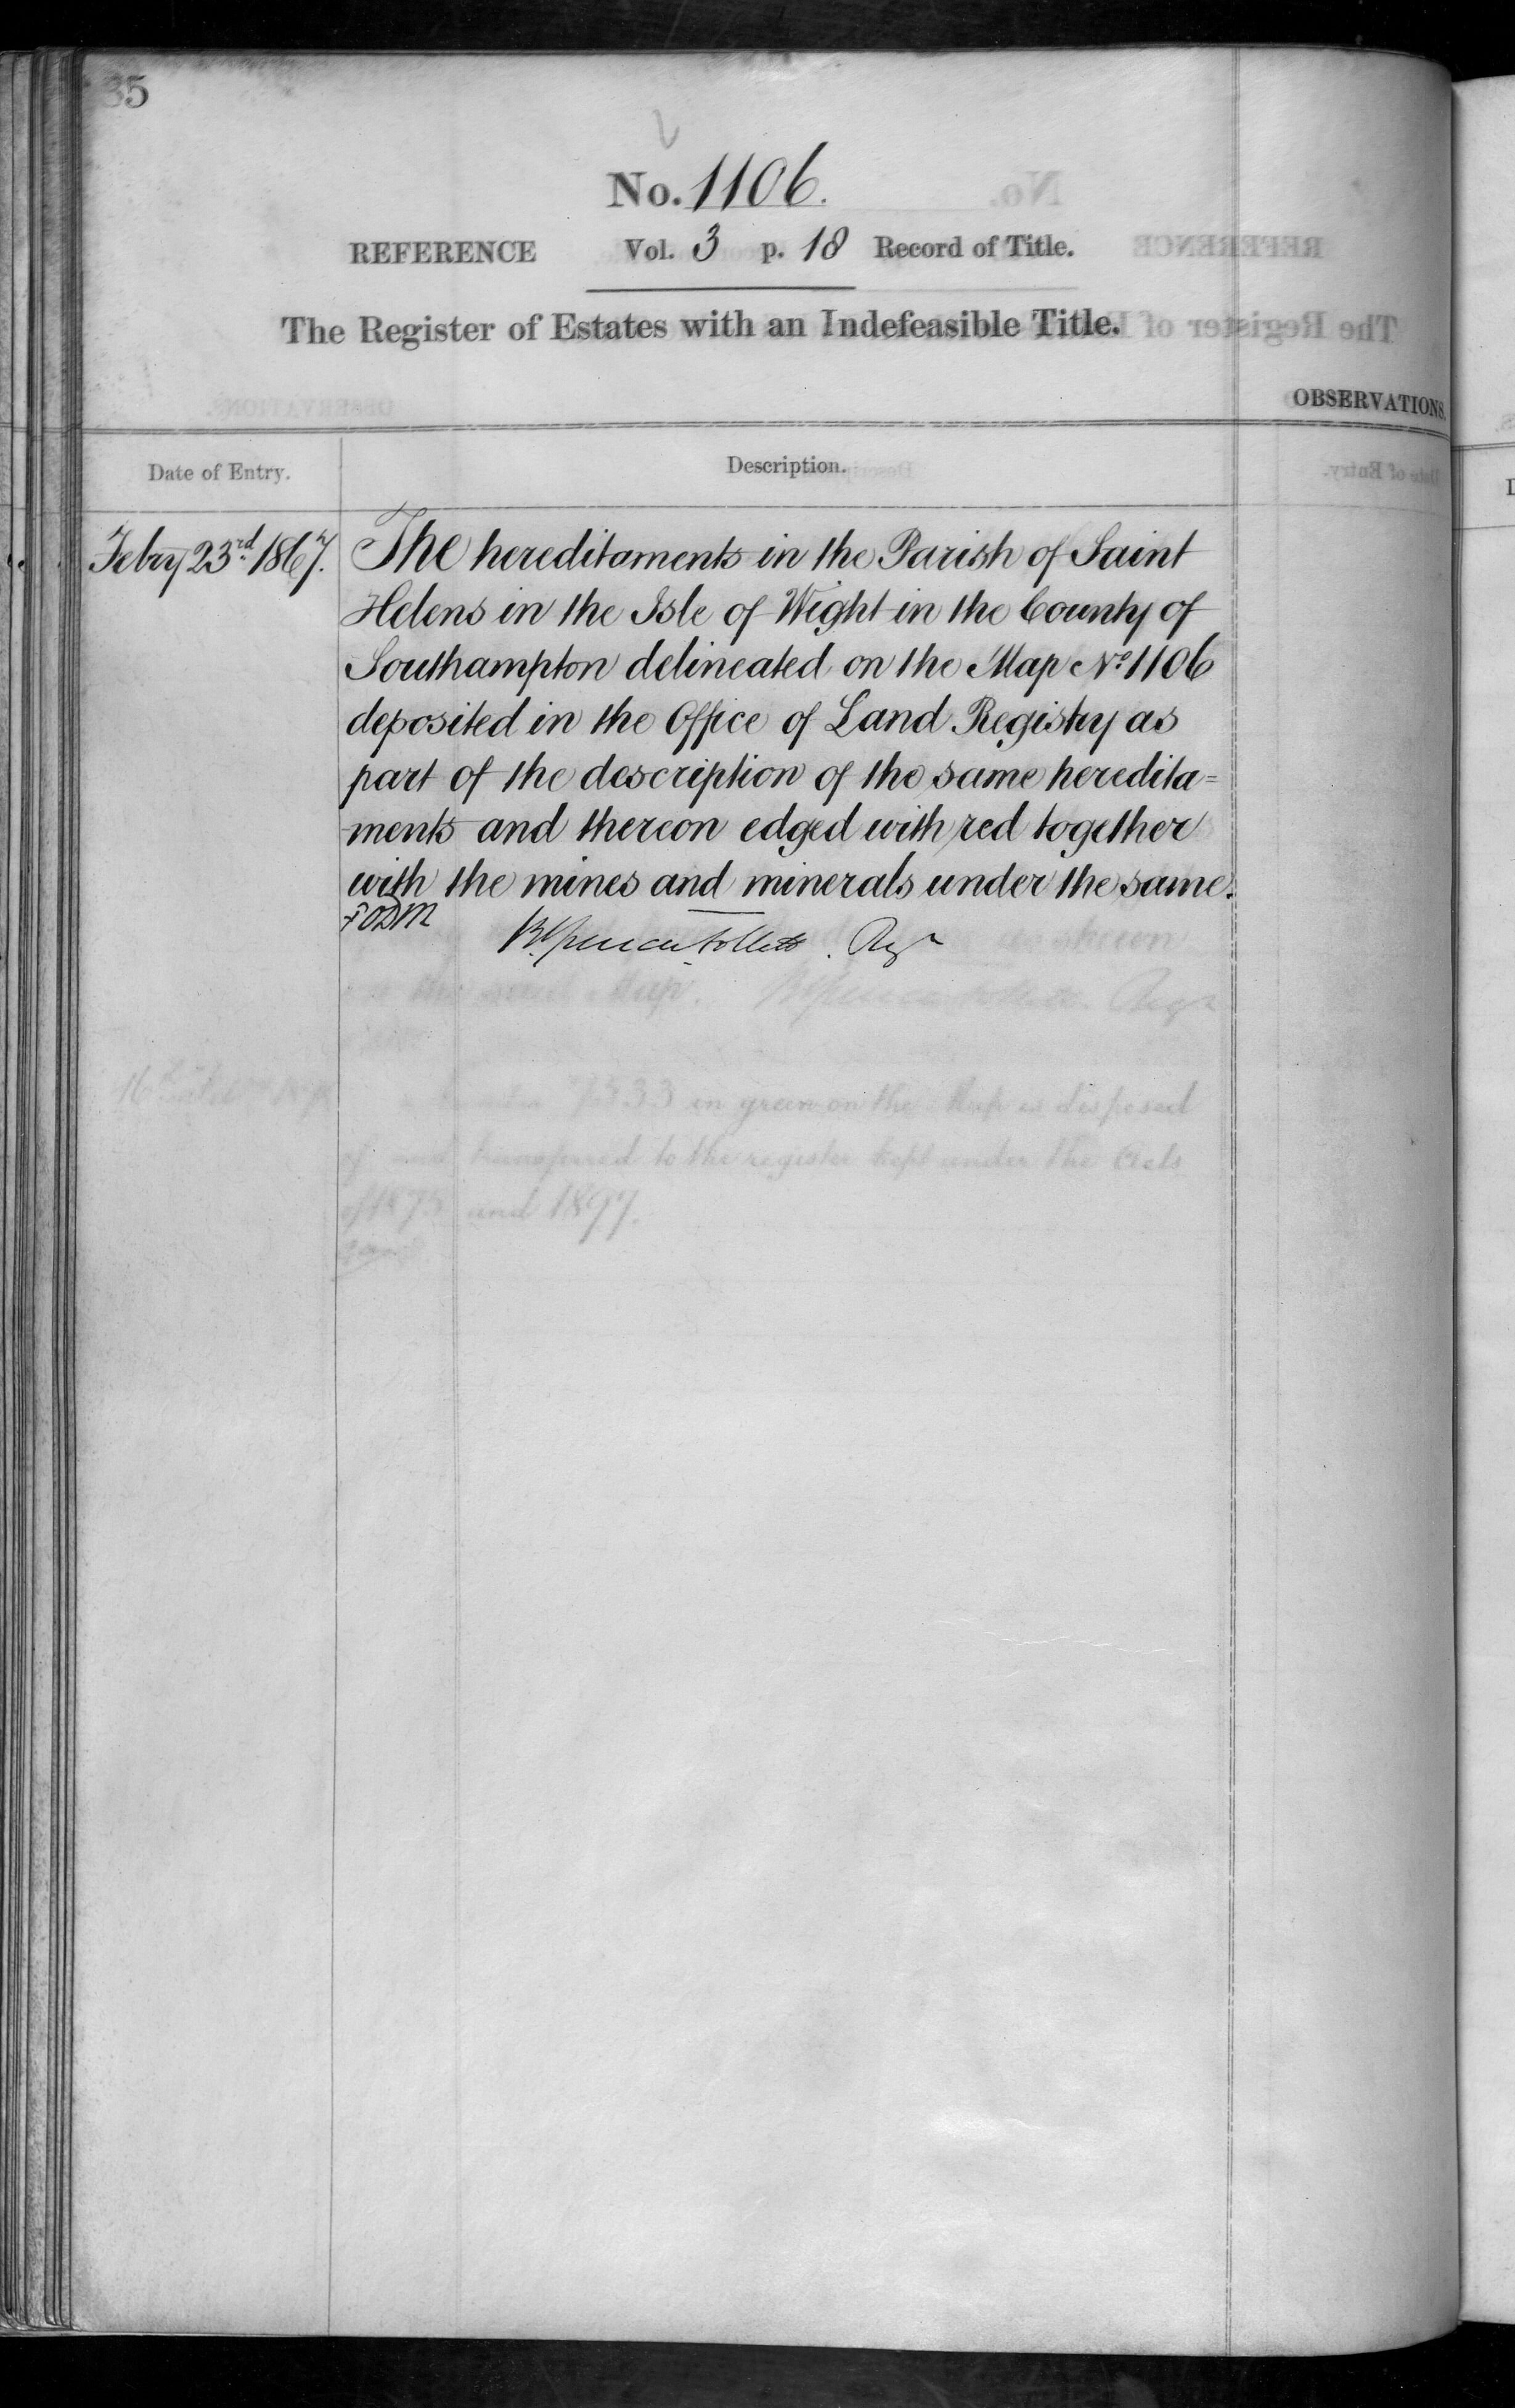 35
No. 1106.
REFERENCE Vol. 3 p. 18 Record of Title.
The Register of Estates with an Indefeasible Title.
OBSERVATIONS.
Date of Entry. Description.
Febry 23rd 1867. The hereditaments in the Parish of Saint
Helens in the Isle of Wight in the County of
Southampton delineated on the Map No 1106
deposited in the Office of Land Registry as
part of the description of the same heredita=
ments and thereon edged with red together
with the mines and minerals under the same.
Regr
as shewn
the said Map. Regr
in green on the Map is disposed
of and transferred to the register kept under the Acts
of 1875 and 1897.